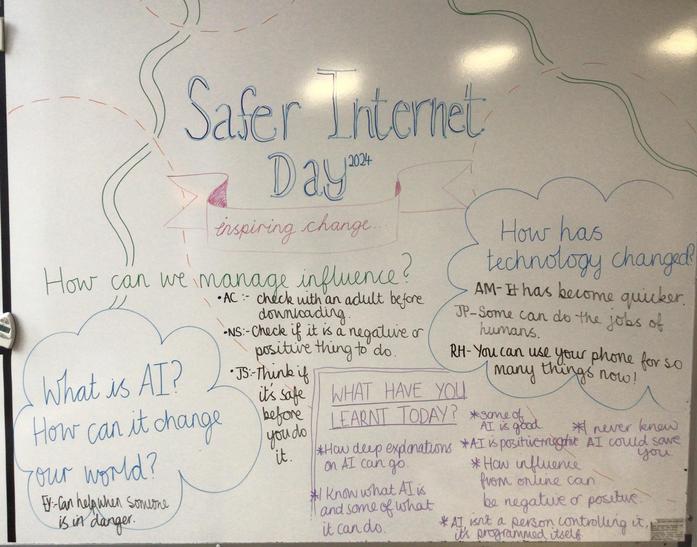 Safer Internet
Day 2024
inspiring change...
How can we manage influence?
• AC :- check with an adult before
downloading.
• NS:- Check if it is a negative or
positive thing to do.
• JS:- Think if
it's safe
before
you do
it.
How has
technology changed?
AM- It has become quicker.
JP- Some can do the jobs of
humans.
RH- You can use your phone for so
many things now!
What is AI?
How can it change
our world?
EY:- Can help when someone
is in danger.
WHAT HAVE YOU
LEARNT TODAY?
* How deep explanations
on AI can go.
* I know what AI is
and some of what
it can do.
* some of
AI is good
* AI is positive
* I never knew
AI could save
you
* How influence
from online can
be negative or positive.
* AI isn't a person controlling it,
it's programmed itself